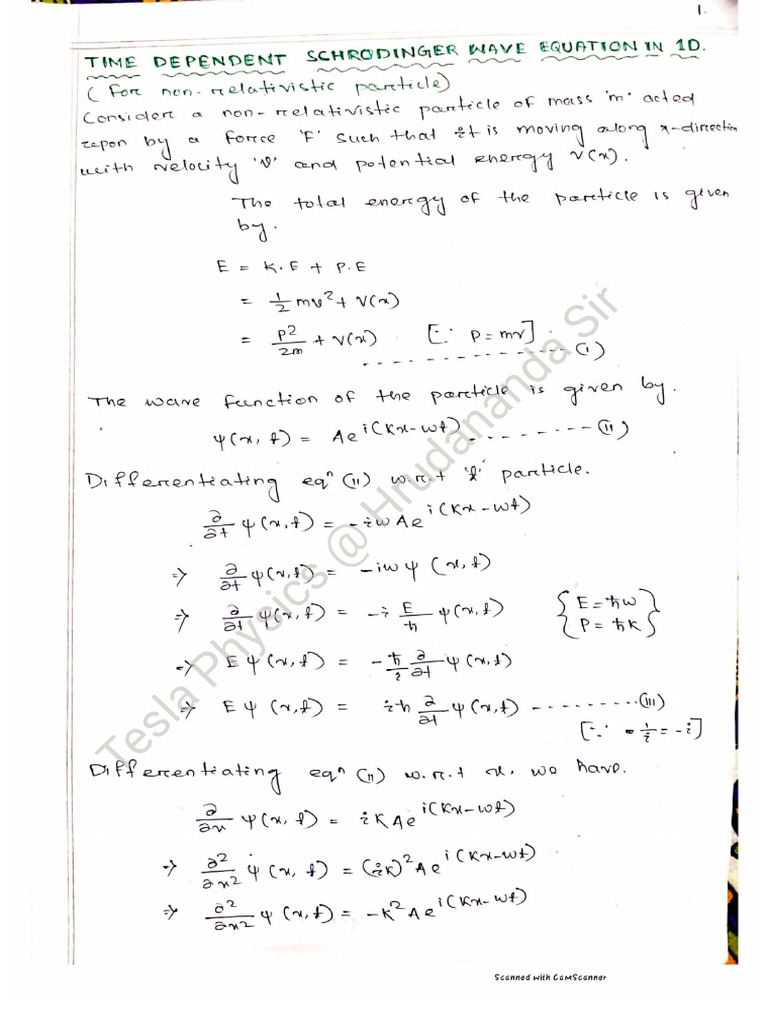 1.
TIME DEPENDENT SCHRODINGER WAVE EQUATION IN 1D.
(For non-relativistic particle)
Consider a non-relativistic particle of mass 'm' acted
upon by a force 'F' such that it is moving along x-direction
with velocity 'v' and potential energy V(x).
The total energy of the particle is given
by.
E = K.E + P.E
= 1/2 mv² + V(x)
= P²/2m + V(x) [∵ P = mv]
- - - - - - - - - - - - - - - (i)
The wave function of the particle is given by.
ψ(x, t) = Ae^i(Kx-wt) - - - - - - - - (ii)
Differentiating eqⁿ (ii) w.r.t 't' particle.
∂/∂t ψ(x,t) = -iwAe^i(Kx-wt)
=> ∂/∂t ψ(x,t) = -iw ψ (x,t)
=> ∂/∂t ψ(x,t) = -i E/ħ ψ(x,t) {E = ħw
P = ħK}
=> E ψ (x,t) = -ħ/i ∂/∂t ψ(x,t)
=> E ψ (x,t) = iħ ∂/∂t ψ(x,t) - - - - - - - - - (iii)
[∵ -1/i = -i]
Differentiating eqⁿ (ii) w.r.t x, we have.
∂/∂x ψ(x, t) = iKAe^i(Kx-wt)
=> ∂²/∂x² ψ(x, t) = (iK)² Ae^i(Kx-wt)
=> ∂²/∂x² ψ (x,t) = -K² Ae^i(Kx-wt)
Tesla Physics @ Hrudananda Sir
Scanned with CamScanner